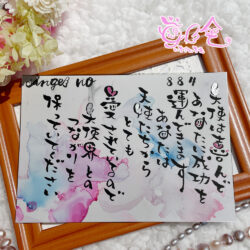 Angel no 887
天使は喜んで
あなたに成功を
運んできます
あなたは
天使たちから
とても
愛されているので
天使界との
つながりを
保っていてください